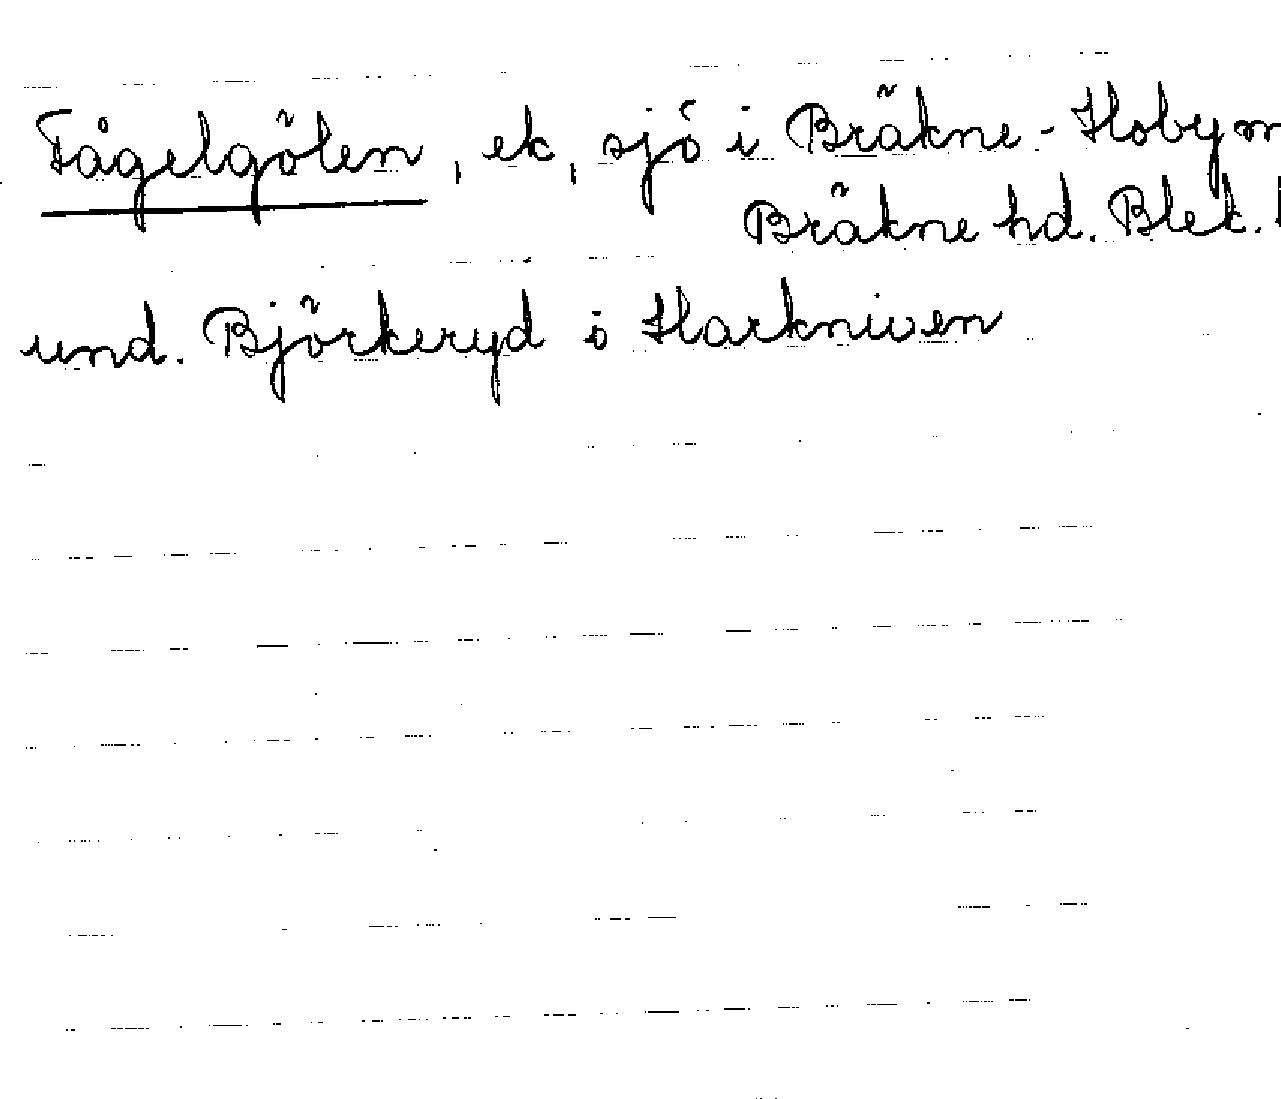 Fågelgölen, ek, sjö i Bräkne-Hoby
Bräkne hd. Blek.
und. Björkeryd ö Harkniven